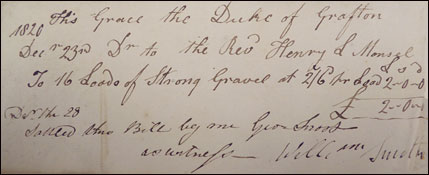 1820 His Grace the Duke of Grafton
Decr 23rd Dr to the Revd Henry L Monsel
£ s d
To 16 Loads of Strong Gravel at 2/6 pr Load 2-0-0
£ 2-0-0
Decr the 28
Settled this Bill by me Geor
as witness William Smith